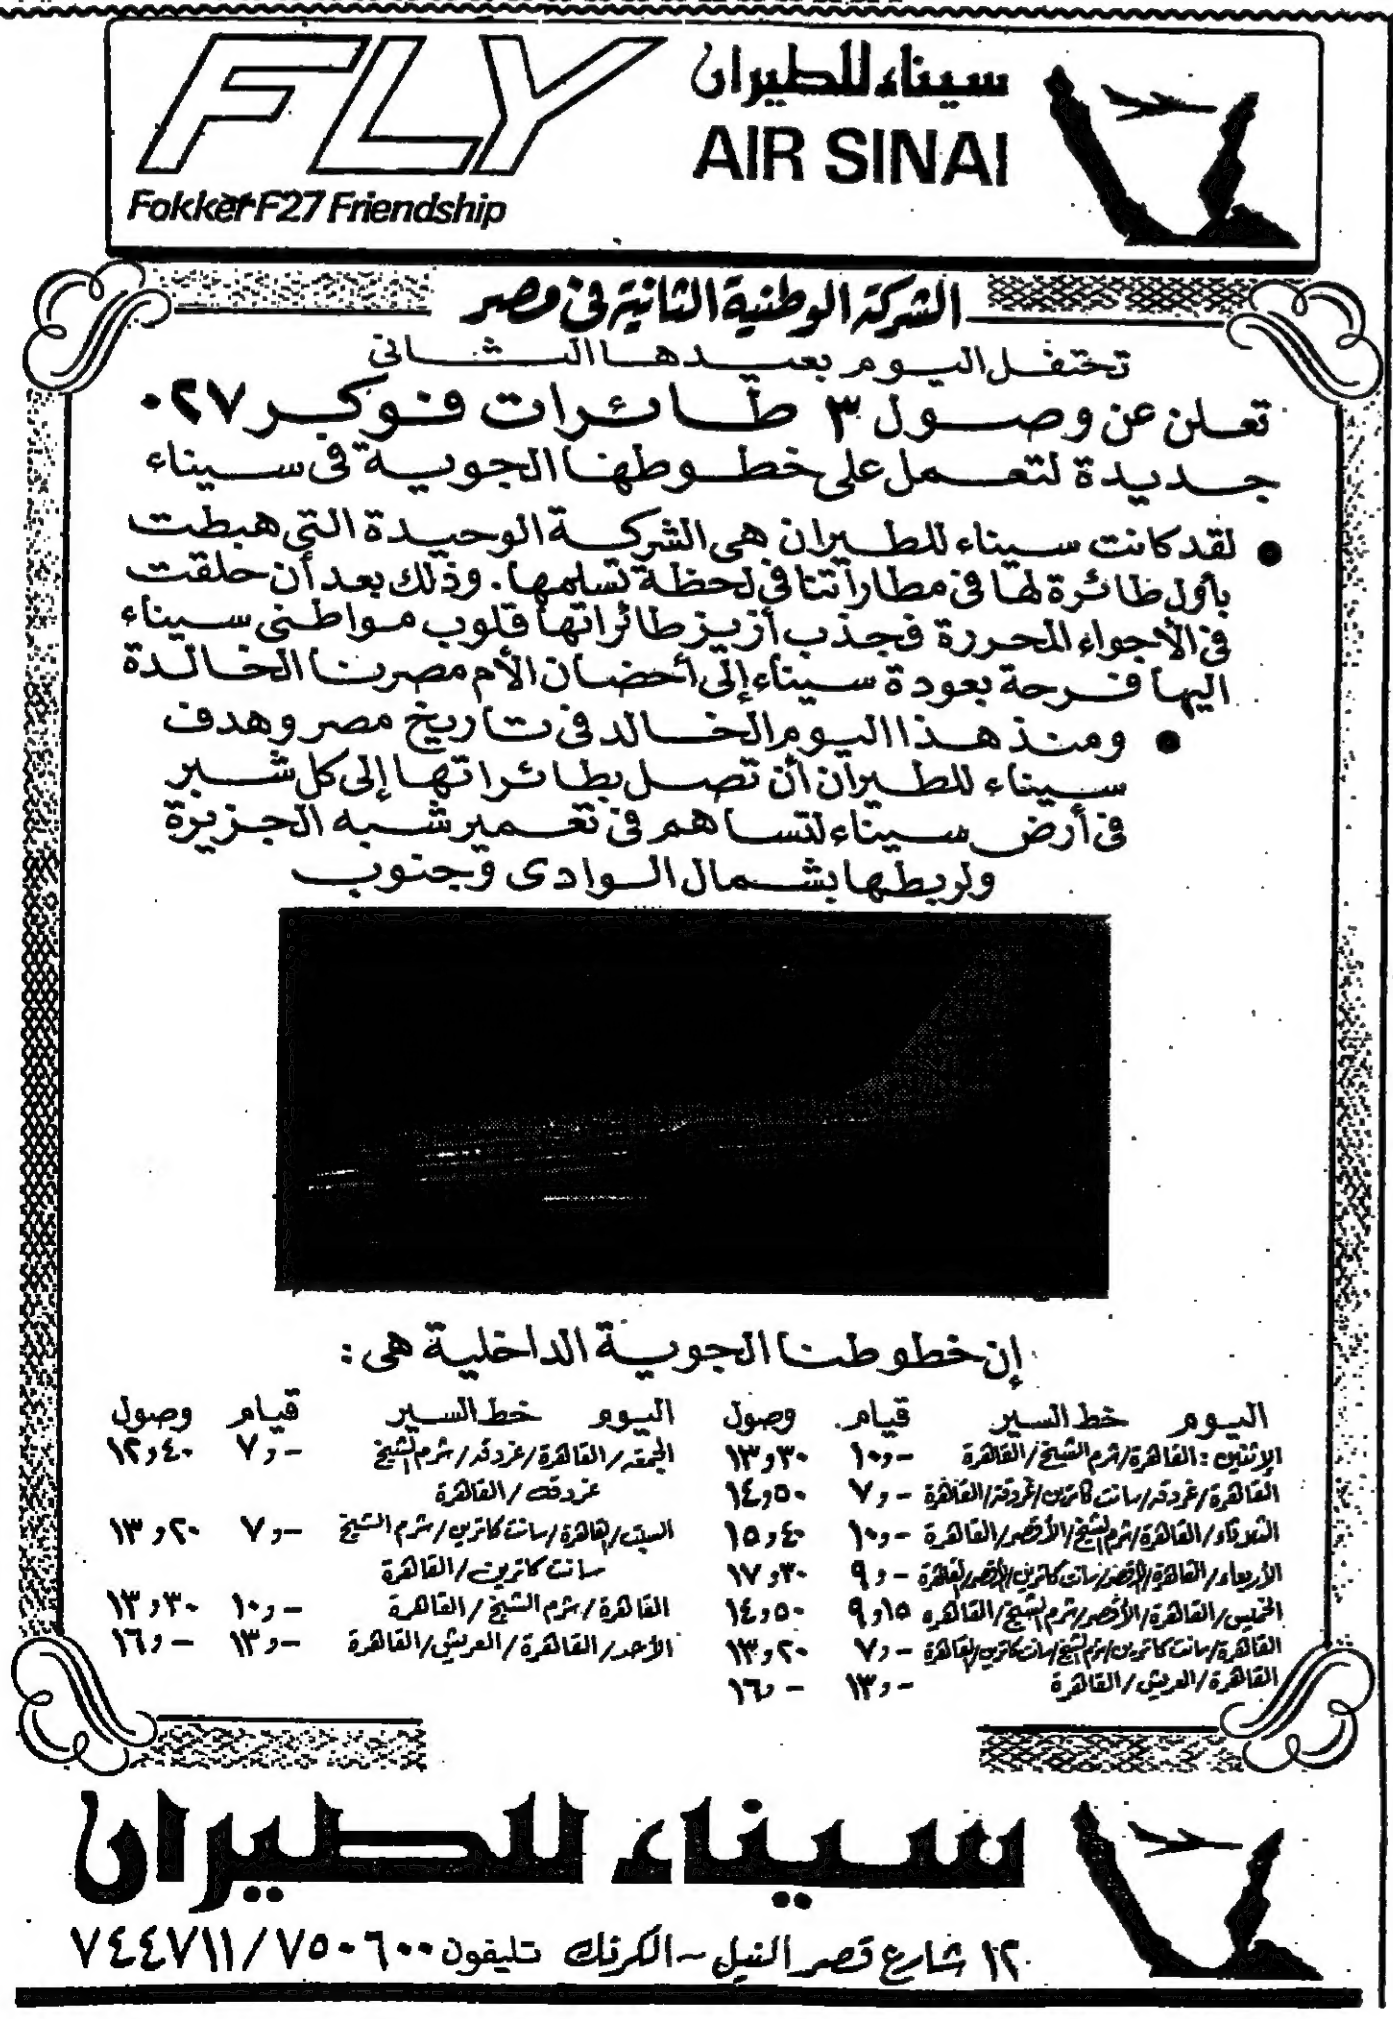 FLY
Fokker F27 Friendship
سيناء للطيران
AIR SINAI
الشركة الوطنية الثانية فى مصر
تحتفل اليوم بعيدها الثانى
تعلن عن وصول ٣ طائرات فوكر ٠٢٧
جديدة لتعمل على خطوطها الجوية فى سيناء
● لقد كانت سيناء للطيران هى الشركة الوحيدة التى هبطت
بأول طائرة لها فى مطاراتنا فى لحظة تسلمها . وذلك بعد أن حلقت
فى الأجواء المحررة فجذب أزيز طائراتها قلوب مواطنى سيناء
اليها فرحة بعودة سيناء إلى أحضان الأم مصرنا الخالدة
● ومنذ هذا اليوم الخالد فى تاريخ مصر وهدف
سيناء للطيران أن تصل بطائراتها إلى كل شبر
فى أرض سيناء لتساهم فى تعمير شبه الجزيرة
ولربطها بشمال الوادى وجنوب
إن خطوطنا الجوية الداخلية هى :
اليوم خط السير قيام وصول
الإثنين : القاهرة/شرم الشيخ/القاهرة -و١٠ ٣٠و١٣
القاهرة/غردقه/سانت كاترين/غردقة/القاهرة -و٧ ٥٠و١٤
الثلاثاء/القاهرة/شرم الشيخ/الأقصر/القاهرة -و١٠ ٤٠و١٥
الأربعاء/القاهرة/الأقصر/سانت كاترين/الأقصر/القاهرة -و٩ ٣٠و١٧
الخميس/القاهرة/الأقصر/شرم الشيخ/القاهره ١٥و٩ ٥٠و١٤
القاهرة/سانت كاترين/شرم الشيخ/سانت كاترين/القاهرة -و٧ ٢٠و١٣
القاهرة/العريش/القاهرة -و١٣ -و١٦
اليوم خط السير قيام وصول
الجمعه/القاهرة/غردقه/شرم الشيخ -و٧ ٤٠و١٢
غردقه/القاهرة
السبت/القاهرة/سانت كاترين/شرم الشيخ -و٧ ٢٠و١٣
سانت كاترين/القاهرة
القاهرة/شرم الشيخ/القاهرة -و١٠ ٣٠و١٣
الأحد/القاهرة/العريش/القاهرة -و١٣ -و١٦
سيناء للطيران
١٢ شارع قصر النيل - الكرنك تليفون ٧٥٠٦٠٠/٧٤٤٧١١